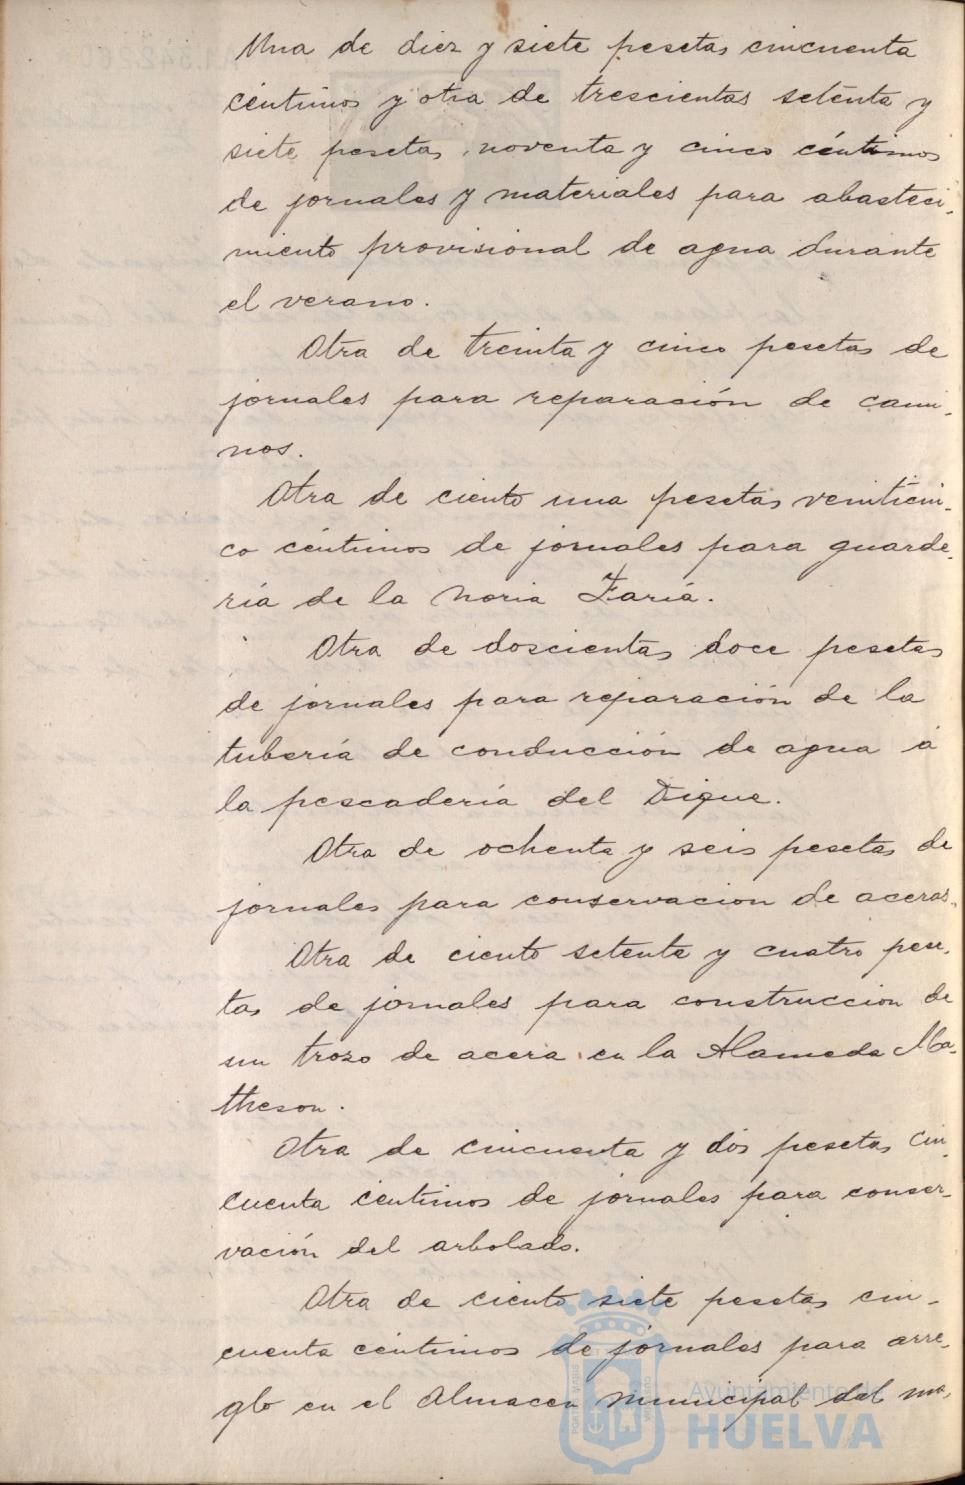 Una de diez y siete pesetas cincuenta
céntimos y otra de trescientas setenta y
siete pesetas, noventa y cinco céntimos
de jornales y materiales para abasteci-
miento provisional de agua durante
el verano.
Otra de treinta y cinco pesetas de
jornales para reparación de cami-
nos.
Otra de ciento una pesetas veinticin-
co céntimos de jornales para guarde-
ría de la noria Zaría.
Otra de doscientas doce pesetas
de jornales para reparación de la
tubería de conducción de agua á
la pescadería del Dique.
Otra de ochenta y seis pesetas de
jornales para conservacion de aceras.
Otra de ciento setenta y cuatro pese-
tas de jornales para construccion de
un trozo de acera en la Alameda Ma-
theson.
Otra de cincuenta y dos pesetas cin-
cuenta céntimos de jornales para conser-
vación del arbolado.
Otra de ciento siete pesetas cin-
cuenta céntimos de jornales para arre-
glo en el Almacen municipal del ma-
Ayuntamiento de
HUELVA